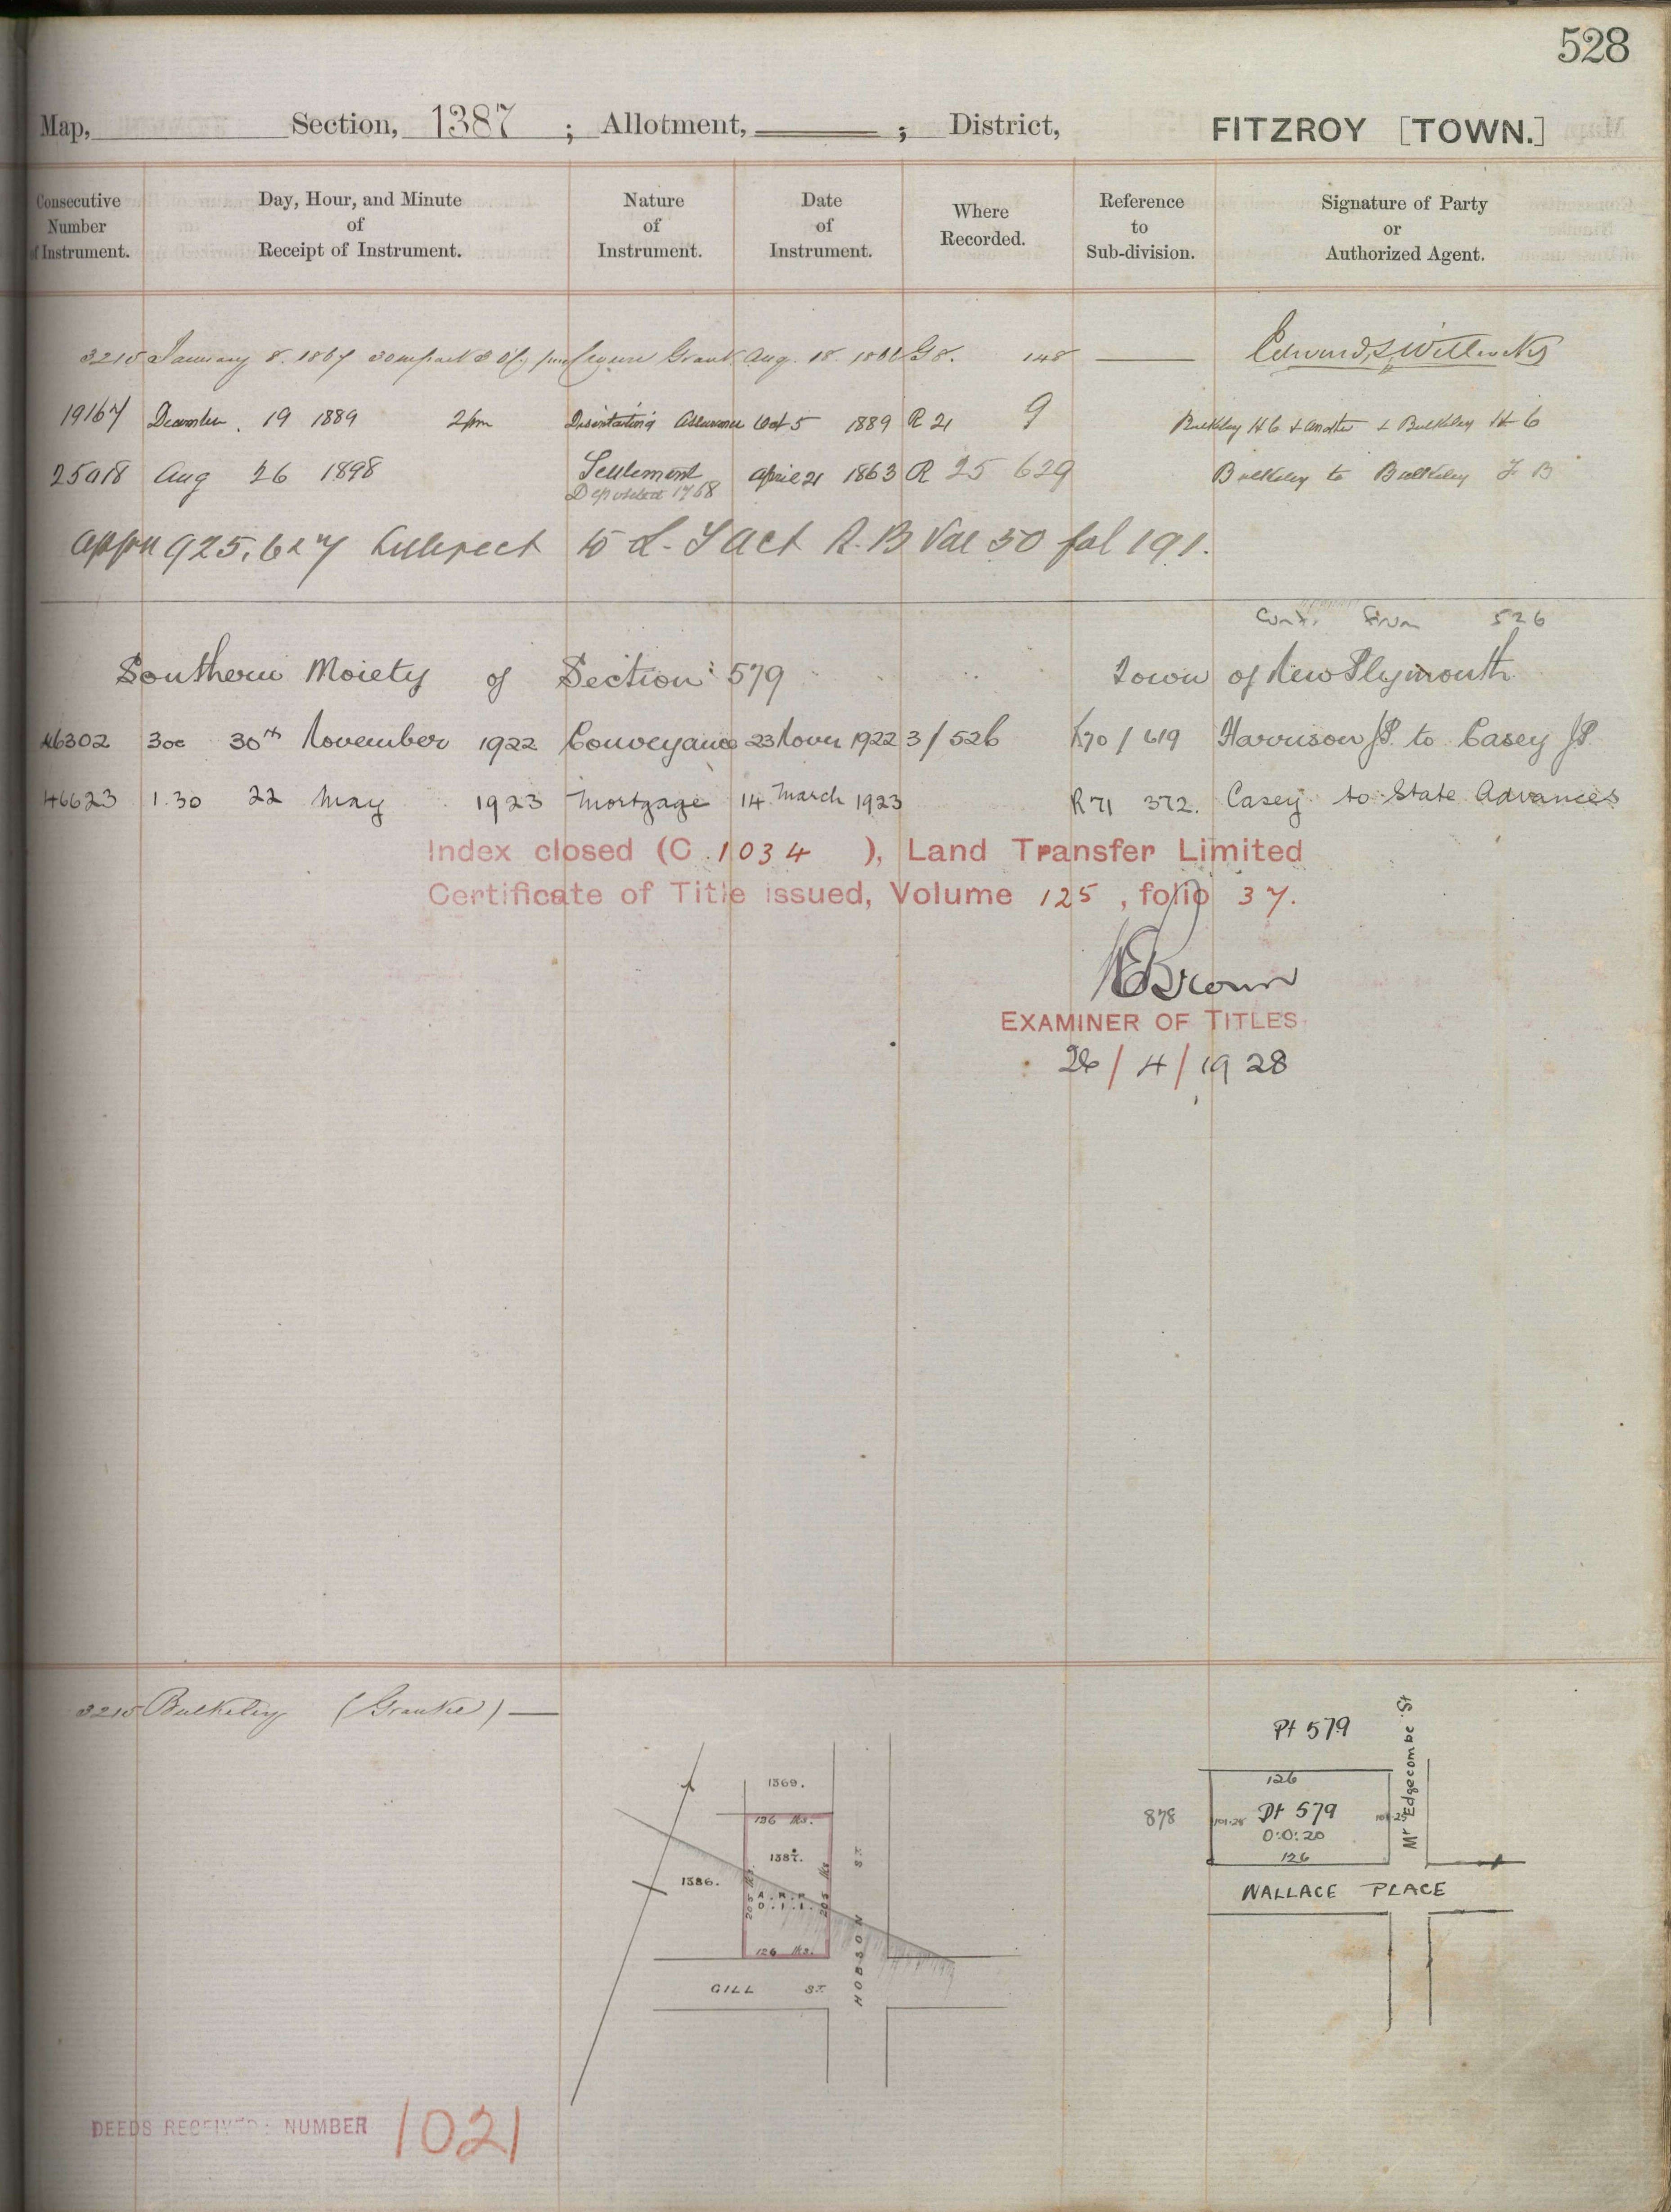 528
Map, Section, 1387 ; Allotment, ; District, FITZROY [TOWN.]
Consecutive Number of Instrument.
Day, Hour, and Minute of Receipt of Instrument.
Nature of Instrument.
Date of Instrument.
Where Recorded.
Reference to Sub-division.
Signature of Party or Authorized Agent.
3215 January 8. 1867 Grant Aug. 18. G8. 148
19167 December. 19 1889 2pm Disentailing Assurance Oct 5 1889 R 21 9 Bulkeley H C & another & Bulkeley H C
25018 Aug 26 1898 Settlement April 21 1863 R 25 629 Bulkeley to Bulkeley F B
Deposited 1768
Appn 925,627 to L. T Act R.B Vol 50 fol 191.
Cont. from 526
Southern Moiety of Section 579 Town of New Plymouth
46302 3oc 30th November 1922 Conveyance 23 Novr 1922 3/526 R70/619 Harrison JP. to Casey JP.
46623 1.30 22 May 1923 Mortgage 14 March 1923 R71 372. Casey to State Advances
Index closed (C.1034 ), Land Transfer Limited
Certificate of Title issued, Volume 125, folio 37.
Brown
EXAMINER OF TITLES
26/4/1928
3215 Bulkeley (Grantee)
1369.
126 lks.
1387.
1386.
A. R. P.
0. 1. 1.
205 lks.
205 lks
126 lks.
GILL ST.
HOBSON ST.
Pt 579
126
Pt 579
0:0:20
126
101.25
101.25
878
Mt Edgecombe St
WALLACE PLACE
DEEDS RECEIVED: NUMBER 1021